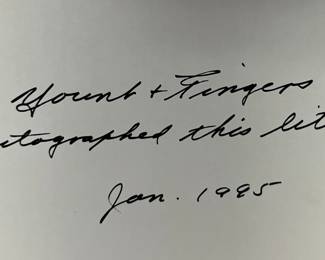 Yount + Fingers
utographed this lit
Jan. 1995